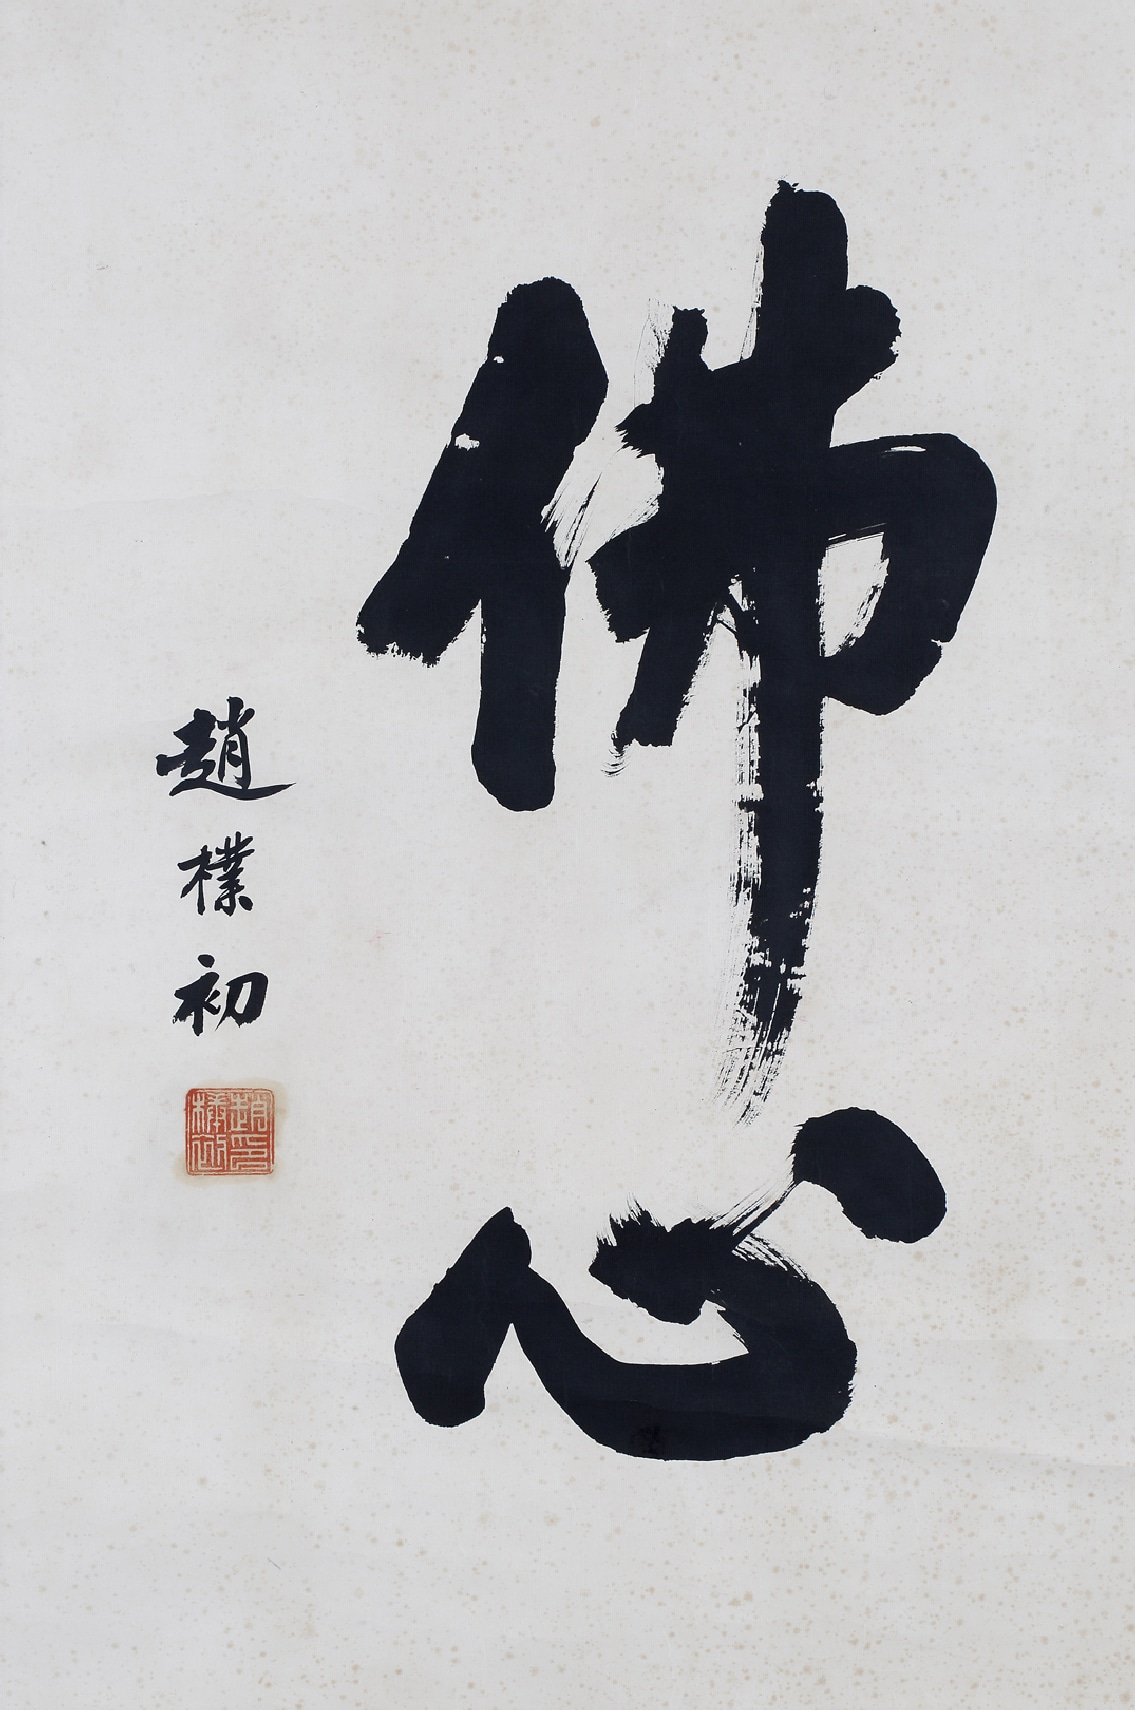 佛心
趙樸初
趙樸初印